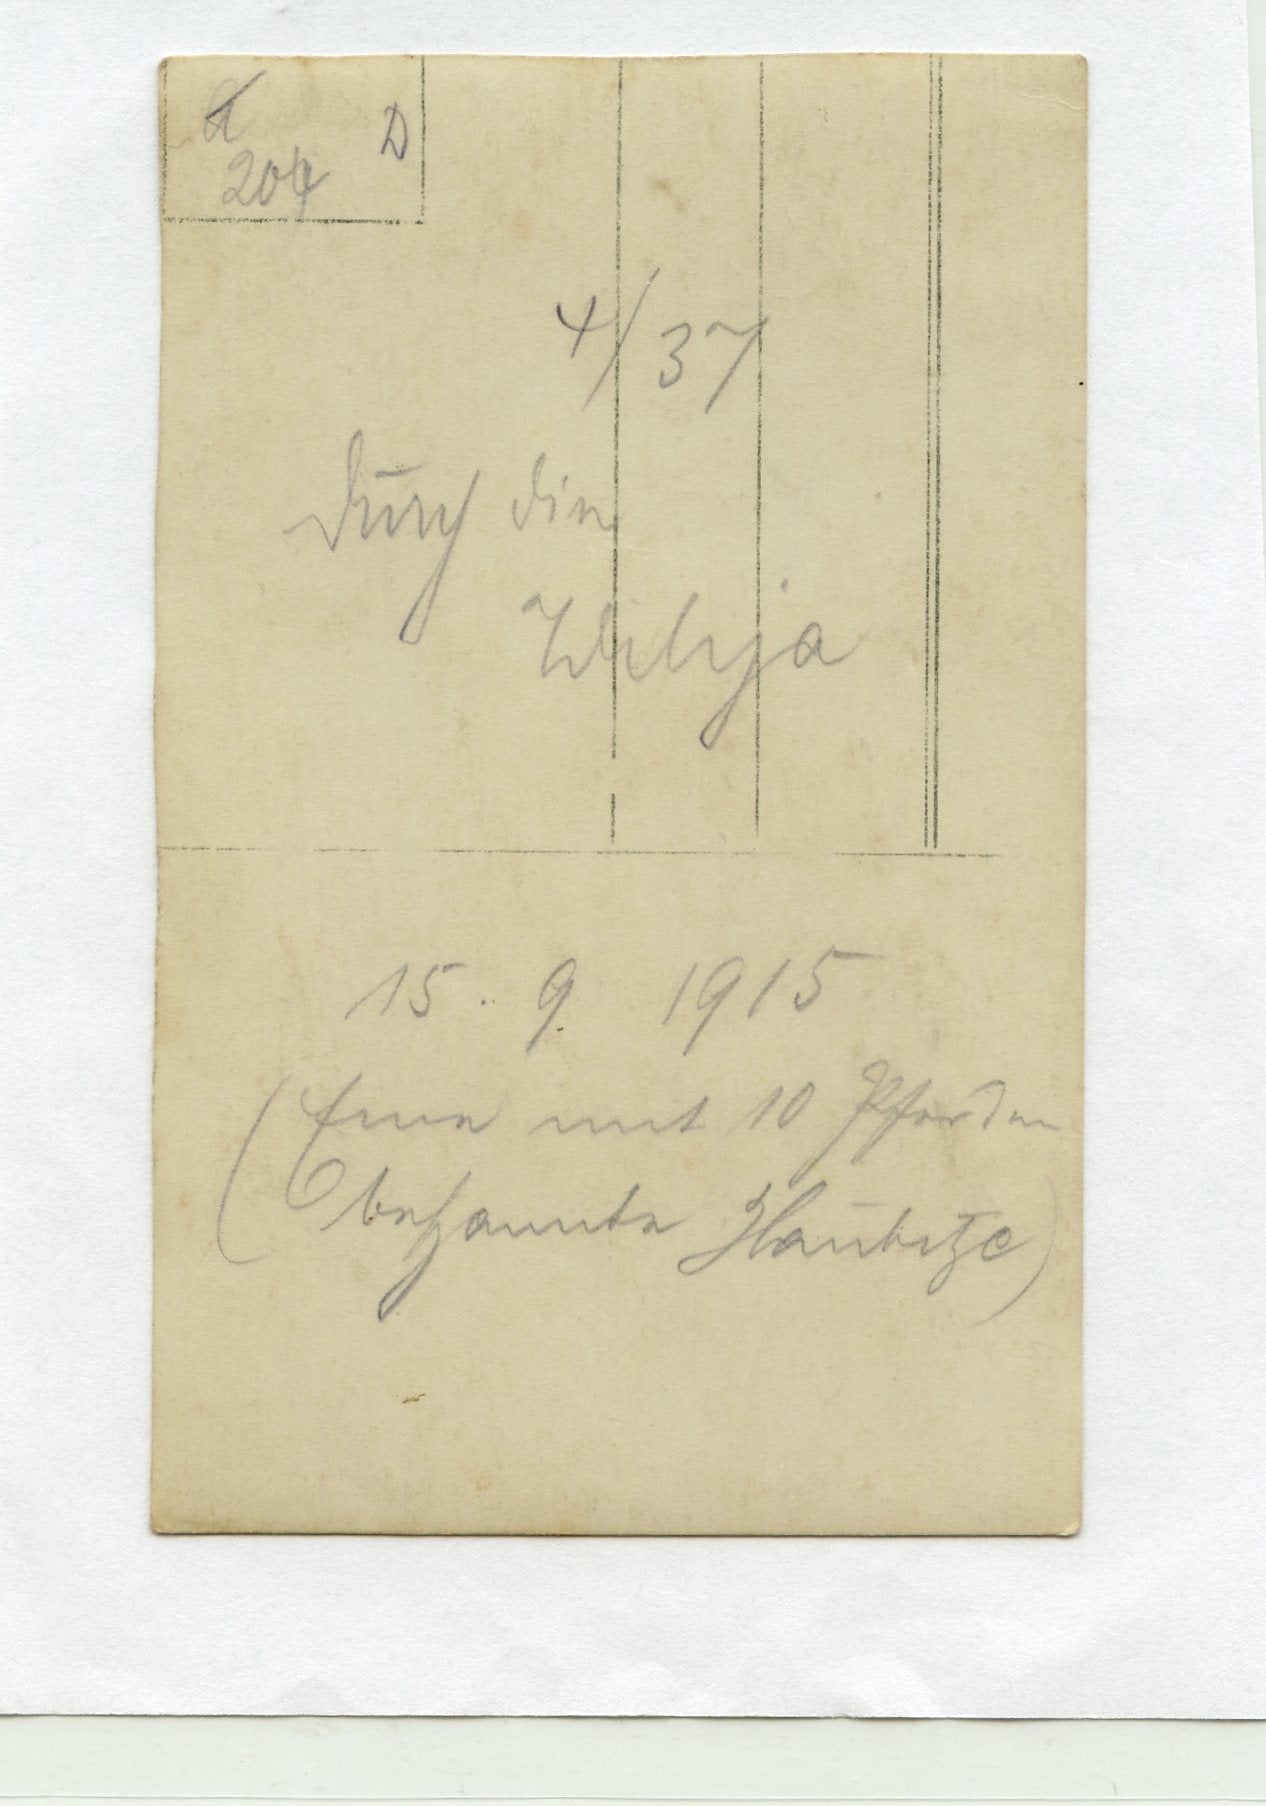 D
204
4/37
Durch die
Wilija
15. 9. 1915
(Eine mit 10 Pferden
bespannte Haubitze)